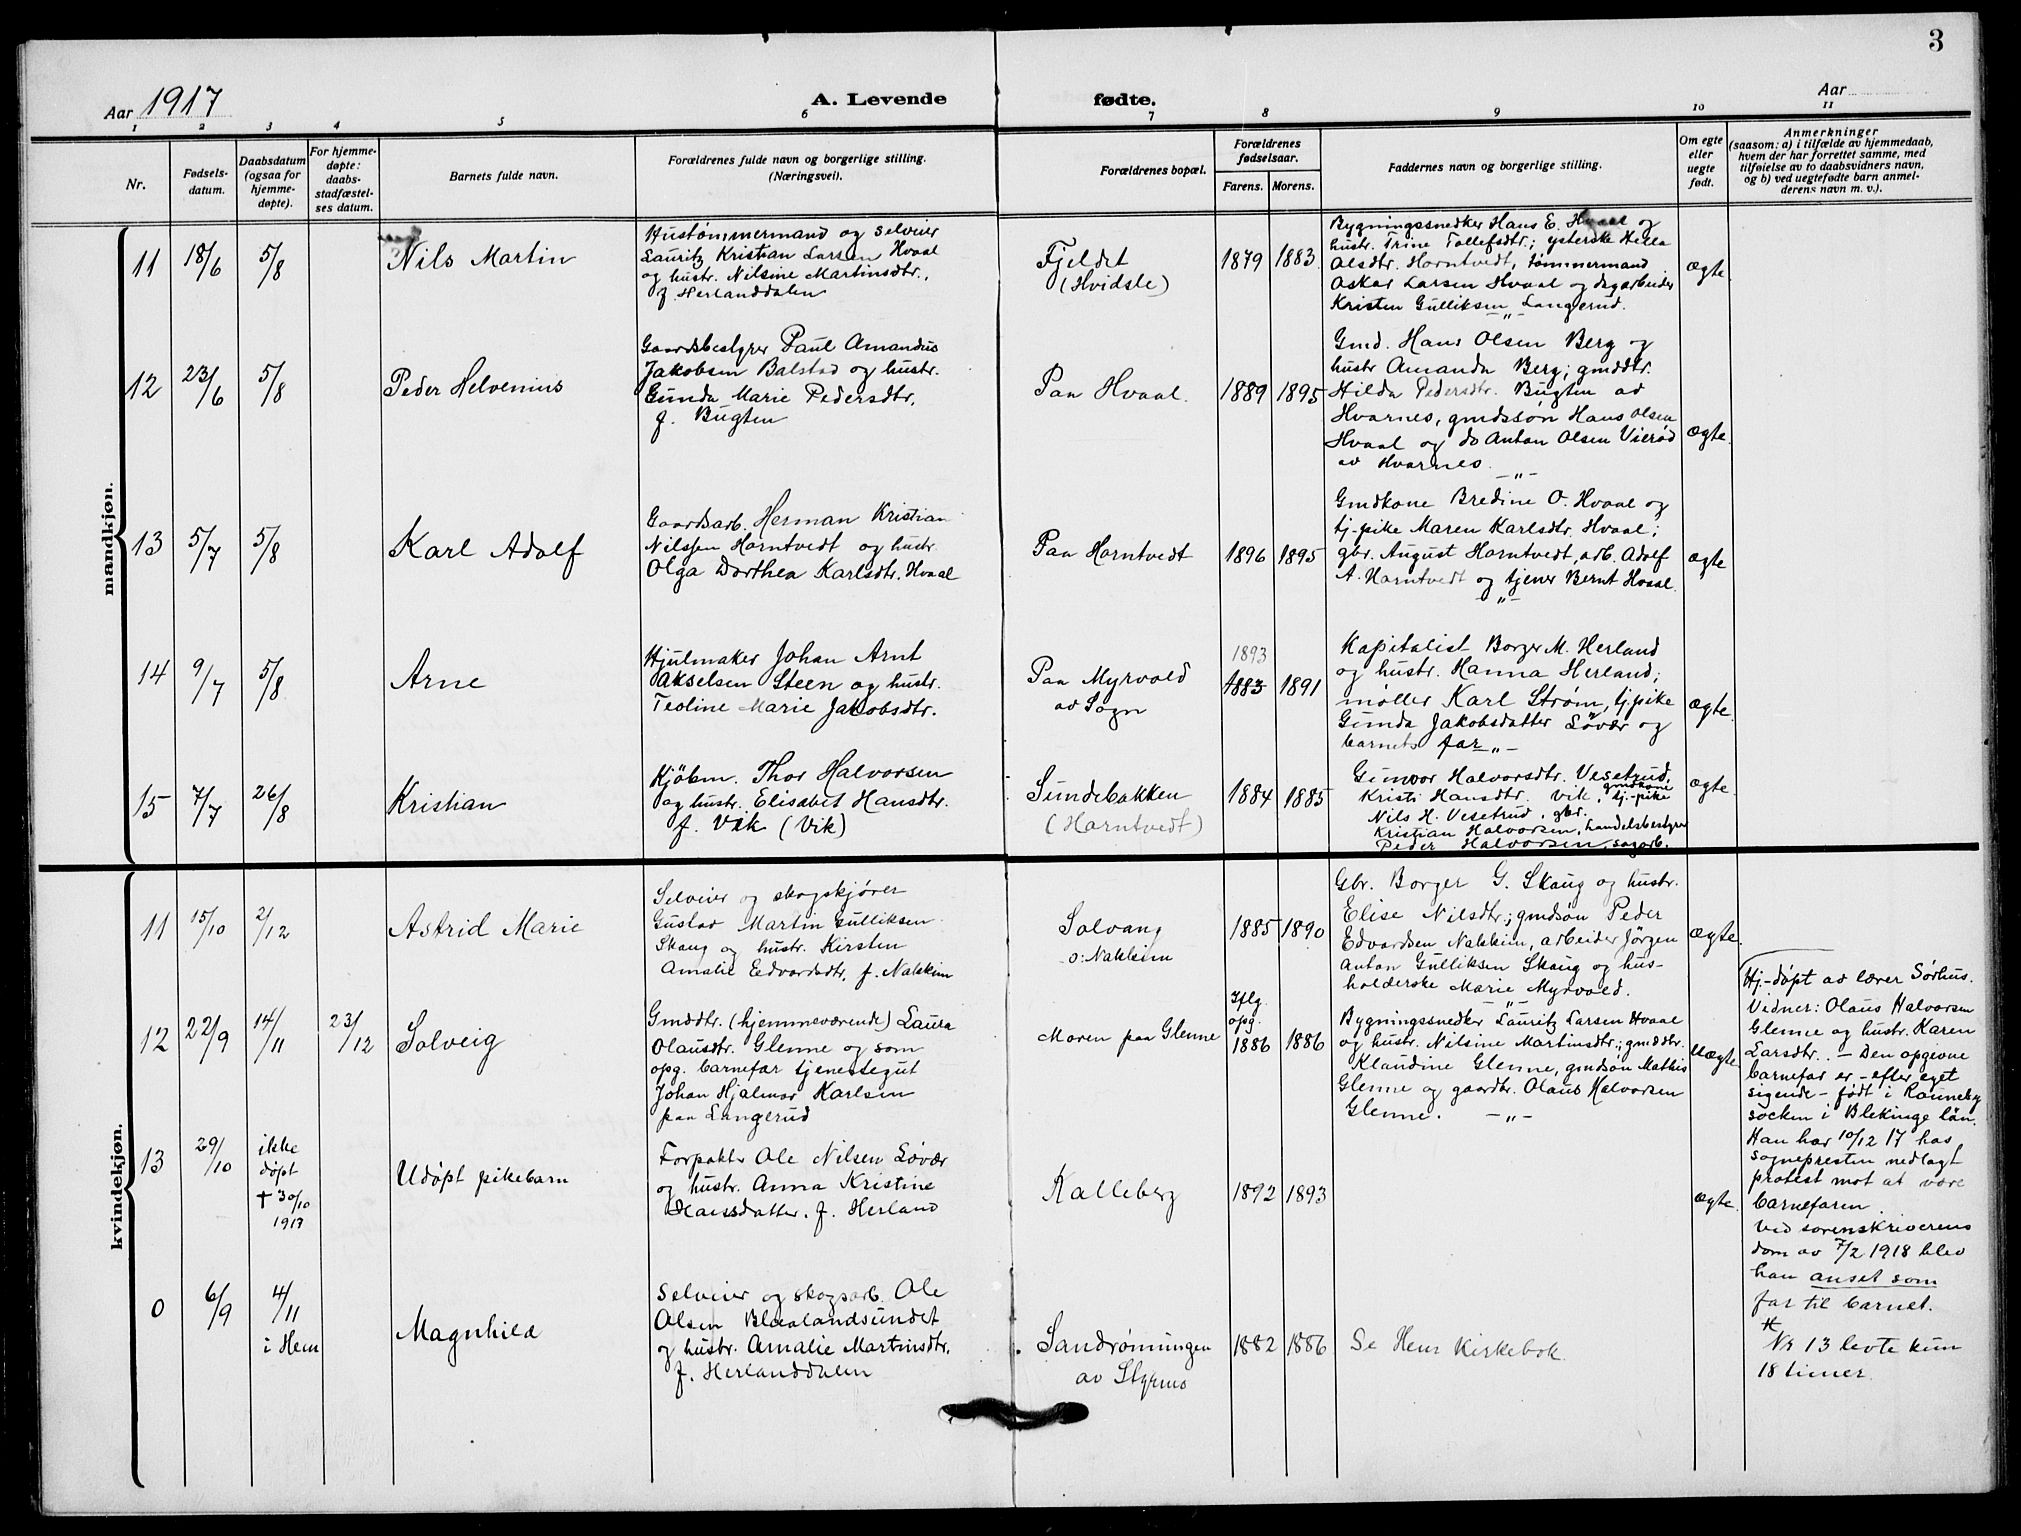 3
Aar 1917
A. Levende fødte.
Aar
1 2 3 4 5 6 7 8 9 10 11
Nr.
Fødsels-
datum.
Daabsdatum
(ogsaa for
hjemme-
døpte).
For hjemme-
døpte:
daabs-
stadfæstel-
ses datum.
Barnets fulde navn.
Forældrenes fulde navn og borgerlige stilling.
(Næringsvei).
Forældrenes bopæl.
Forældrenes
fødselsaar.
Farens. Morens.
Faddernes navn og borgerlige stilling.
Om egte
eller
uegte
født.
Anmerkninger
(saasom: a) i tilfælde av hjemmedaab,
hvem der har forrettet samme, med
tilføielse av to daabsvidners navn,
og b) ved uegtefødte barn anmel-
derens navn m. v.).
mandkjøn.
11 18/6 5/8
Nils Martin
Hustømmermand og selveier
Lauritz Kristian Larsen Hvaal
og hustr. Nilsine Martinsdtr.,
f. Herlanddalen
Fjeldet
(Hvidsle)
1879 1883
Bygningssnedker Hans E. Hvaal og
hustr. Trine Tollefsdtr.; ysterske Hella
Olsdtr. Horntvedt, tømmermand
Oskar Larsen Hvaal og dagarbeider
Kristen Gulliksen Langerud.
-"-
ægte
12 23/6 5/8
Peder Helvenius
Gaardsbestyrer Paul Amandus
Jakobsen Balstad og hustr.
Gunda Marie Pedersdtr.
f. Bugten
Paa Hvaal.
1889 1895
Gmd. Hans Olsen Berg og
hustr Amanda Berg; gmddtr.
Hilda Pedersdtr. Bugten av
Hvarnes, gmdssøn Hans Olsen
Hvaal og do Anton Olsen Vierød
av Hvarnes.
-"-
ægte
13 5/7 5/8
Karl Adolf
Gaardsarb. Herman Kristian
Nilssen Horntvedt og hustr.
Olga Dorthea Karlsdtr. Hvaal
Paa Horntvedt
1896 1895
Gmdkone Bredine O. Hvaal og
tj-pike Maren Karlsdtr. Hvaal;
gbr. August Horntvedt, arb. Adolf
A. Horntvedt og tjener Bernt Hvaal.
-"-
ægte
14 9/7 5/8
Arne
Hjulmaker Johan Arnt
Akselsen Steen og hustr.
Teoline Marie Jakobsdtr.
Paa Myrvold
av Sogn
1893
1883 1891
Kapitalist Borger M. Herland
og hustr. Hanna Herland;
møller Karl Strøm, tj.pike
Gunda Jakobsdatter Løvær og
barnets far -"-
ægte
15 7/7 26/8
Kristian
Kjöbm. Thor Halvorsen
og hustr. Elisabet Hansdtr.
f. Vik (Vik)
Sundebakken
(Horntvedt)
1884 1885
Gunvor Halvorsdtr. Vesetrud,
gmdkone
Kristi Hansdtr. Vik, tj.-pike
Nils H. Vesetrud, gbr.
Kristian Halvorsen, handelsbestyrer
Peder Halvorsen, sagarb.
ægte
kvindekjøn.
11 15/10 2/12
Astrid Marie
Selveier og skogskjører
Gustav Martin Gulliksen
Skaug og hustr. Kirsten
Amalie Edvardsdtr. f. Nalskim
Solvang
o: Nakkim
1885 1890
Gbr. Borger G. Skaug og hustr.
Elise Nilsdtr.; gmdsøn Peder
Edvardsen Nakkim, arbeider Jørgen
Anton Gulliksen Skaug og hus-
holderske Marie Myrvold.
-"-
ægte
12 22/9 14/11 23/12
Solveig
Gmddtr. (hjemmeværende) Laura
Olausdtr. Glenne og som
opg. barnefar tjenestegut
Johan Hjalmar Karlsen
paa Langerud
Moren paa Glenne
Iflg.
opg.
1886 1886
Bygningssnedker Lauritz Larsen Hvaal
og hustr. Nilsine Martinsdtr.; gmddtr.
Klaudine Glenne, gmdsøn Mathis
Glenne og gaardbr. Olaus Halvorsen
Glenne. -"-
Uægte
Hj-døpt av lærer Sørhus.
Vidner: Olaus Halvorsen
Glenne og hustr. Karen
Larsdtr. - Den opgivne
barnefar er - efter eget
sigende - født i Ronneby
socken i Blekinge län.
Han har 10/12 17 hos
sognepresten nedlagt
protest mot at være
barnefaren.
Ved sorenskriverens
dom av 7/2 1918 blev
han anset som
far til barnet.
13 29/10
ikke
døpt
† 30/10
1917
Udøpt pikebarn
Forpakter Ole Nilsen Løvær
og hustr. Anna Kristine
Hansdatter. f. Herland
Kalleberg
1892 1893
ægte
Nr 13 levte kun
18 timer.
0 6/9 4/11
i Hem
Magnhild
Selveier og skogsarb. Ole
Olsen Blaalandsundet
og hustr. Amalie Martinsdtr.
f. Herlanddalen
Sandrønningen
av Styrmo
1882 1886
Se Hem Kirkebok.